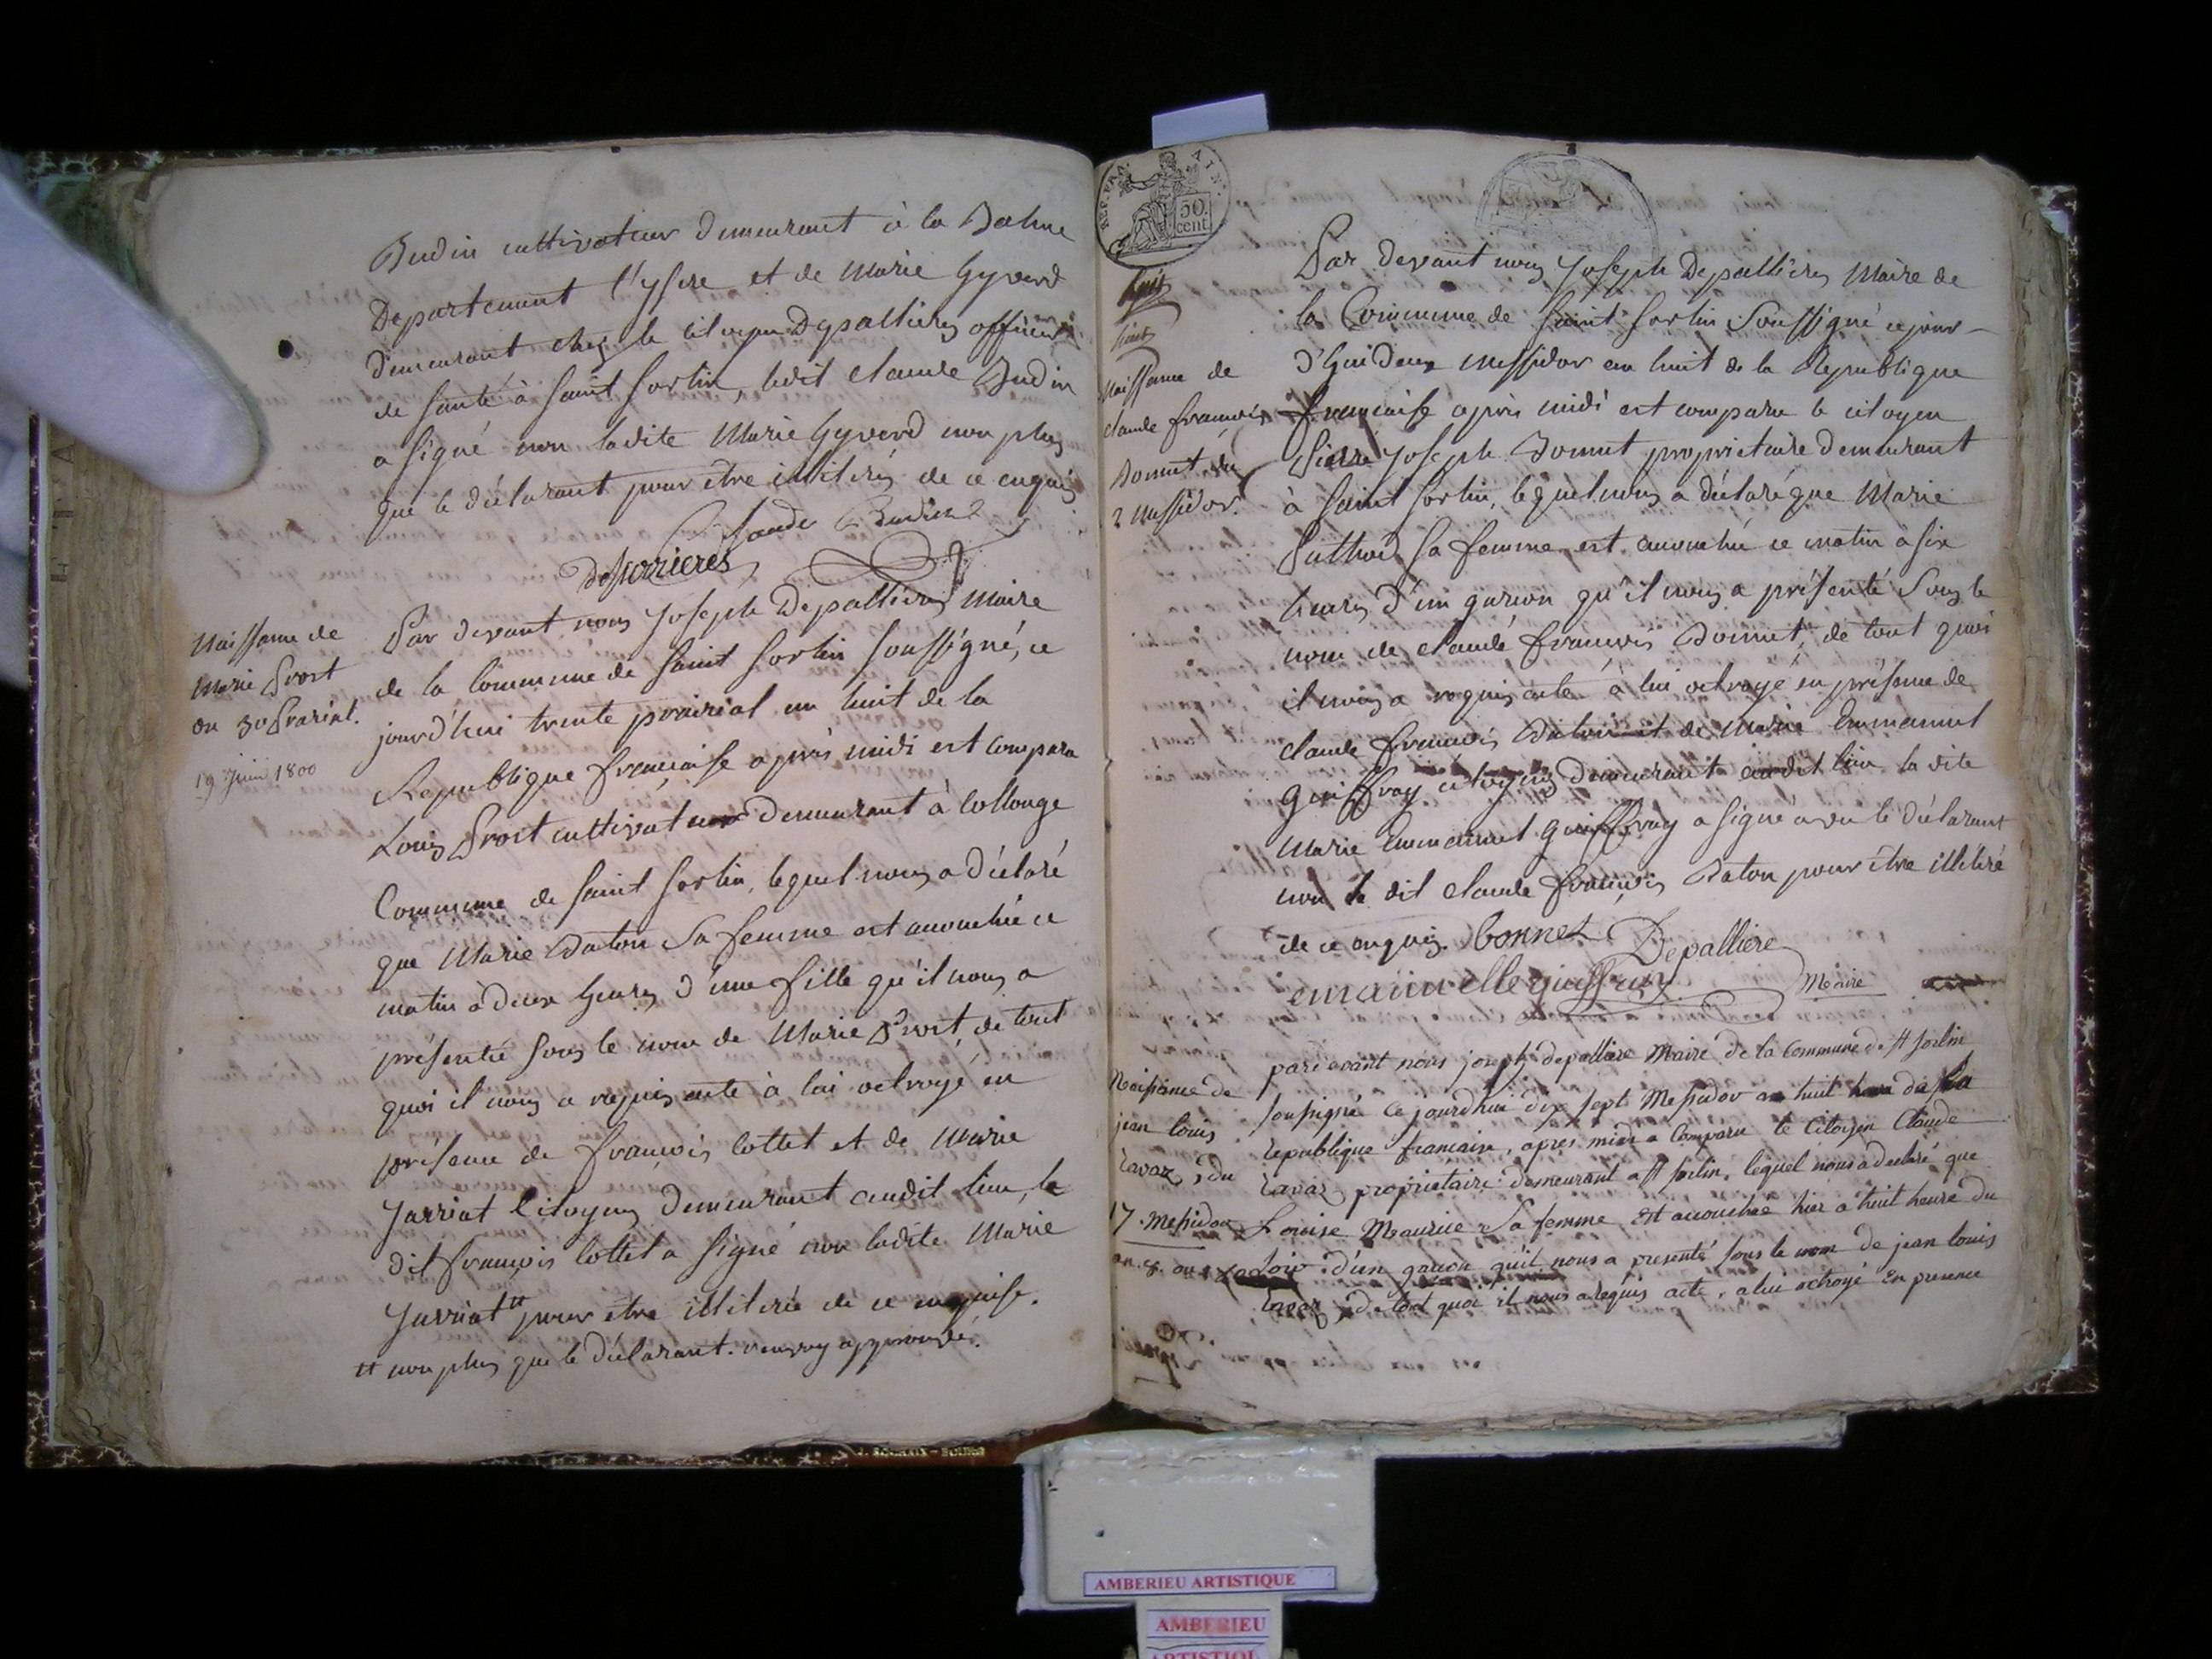 Budin cultivateur demeurant à la Balme
Departement l'ysere et de Marie Gyverd
demeurant chez le citoyen Depallieres officier
de santé à Saint Sorlin, ledit claude Budin
a signé non ladite Marie Gyverd non plus
que le déclarant pour être illiterés de ce enquis
Claude Budin
Naissance de
Marie Prost
du 30 Prarial.
19 Juin 1800
Par devant nous Joseph Depallières Maire
de la Commune de Saint Sorlin soussigné, ce
jourd'hui trente prairial an huit de la
Republique française après midi est comparu
Louis Prost cultivateur demeurant à Collonge
Commune de Saint Sorlin, lequel nous a déclaré
que Marie Baton sa femme est accouchée ce
matin à deux heures d'une fille qu'il nous a
présentée sous le nom de Marie Prost, de tout
quoi il nous a requis acte à lui octroyé en
présence de françois Cottet et de Marie
Jarriat Citoyens demeurant audit lieu, le
dit françois Cottet a signé non ladite Marie
Jarriat # pour être illiterée de ce enquise.
# non plus que le déclarant. renvoy approuvé.
REP. FRA. AIN.
50
cent
huit
Naissance de
claude françois
Bonnet du
2 messidor.
Par devant nous Joseph Depallières Maire de
la Commune de Saint Sorlin Soussigné ce jour-
d'hui deux messidor an huit de la Republique
française après midi est comparu le citoyen
Pierre Joseph Bonnet proprietaire demeurant
à Saint Sorlin, lequel nous a déclaré que Marie
sa femme est accouchée ce matin à six
heures d'un garcon qu'il nous a présenté sous le
nom de claude françois Bonnet, de tout quoi
il nous a requis acte à lui octroyé en présence de
claude françois Baton et de Marie Emmanuel
Guiffray citoyens demeurant audit lieu la dite
Marie Emmanuel Guiffray a signé avec le déclarant
non le dit claude françois Baton pour être illiteré
de ce enquis. bonnet Depalliere
emanuelle guiffray Maire
Naissance de
jean louis
ravaz, du
17. Messidor
an. 8.
pardevant nous joseph depalliere Maire de la Commune de St Sorlin
soussigné ce jourdhui dix sept Messidor an huit de la
republique francaise, apres midi a Comparu le Citoyen Claude
ravaz proprietaire demeurant a St Sorlin, lequel nous a declaré que
Louise Maurice sa femme est accouchée hier a huit heure du
soir d'un garcon qu'il nous a presenté sous le nom de jean louis
ravaz, de tout quoi il nous a requis acte, a lui octroyé En presence
AMBERIEU ARTISTIQUE
AMBERIEU
ARTISTIQUE